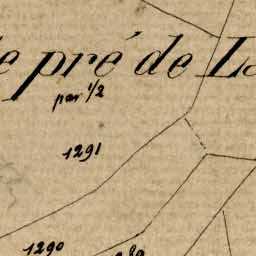 le pré de L
par 1/2
1291
1290